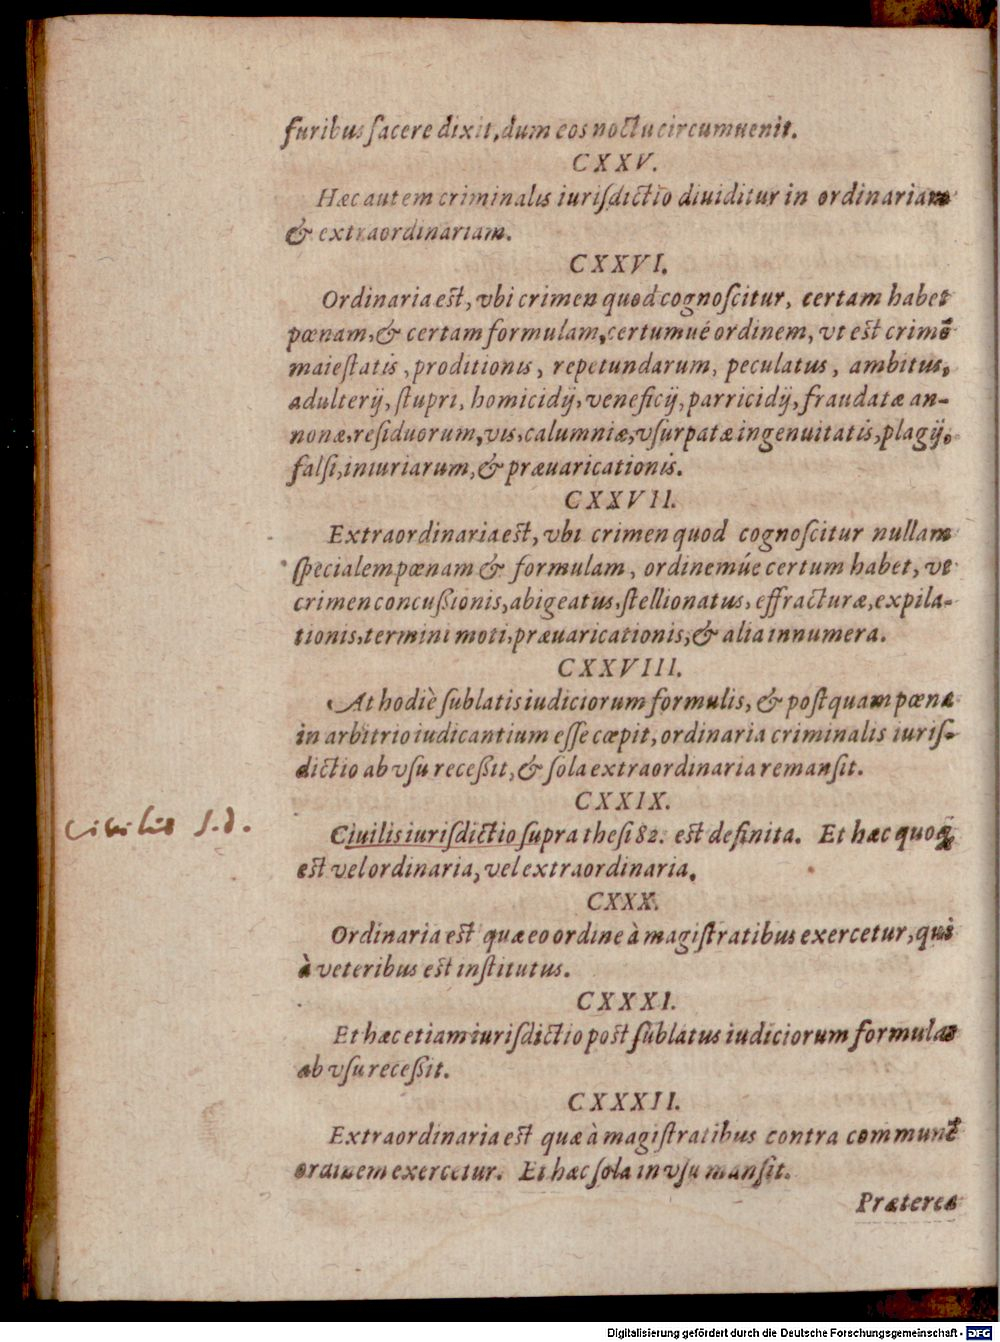 furibus facere dixit, dum eos noctu circumuenit.
CXXV.
Hæc autem criminalis iurisdictio diuiditur in ordinariam
& extraordinariam.
CXXVI.
Ordinaria est, vbi crimen quod cognoscitur, certam habet
pœnam, & certam formulam, certumué ordinem, vt est crimẽ
maiestatis, proditionis, repetundarum, peculatus, ambitus,
adulterij, stupri, homicidij, veneficij, parricidij, fraudatæ an-
nonæ, residuorum, vis, calumniæ, vsurpatæ ingenuitatis, plagij,
falsi, iniuriarum, & præuaricationis.
CXXVII.
Extraordinaria est, vbi crimen quod cognoscitur nullam
specialem pœnam & formulam, ordinemúe certum habet, vt
crimen concußionis, abigeatus, stellionatus, effracturæ, expila-
tionis, termini moti, præuaricationis, & alia innumera.
CXXVIII.
At hodiè sublatis iudiciorum formulis, & postquam pœna
in arbitrio iudicantium esse cœpit, ordinaria criminalis iuris-
dictio ab vsu receßit, & sola extraordinaria remansit.
CXXIX.
Civilis J.d.
Ciuilis iurisdictio supra thesi 82. est definita. Et hæc quoq;
est vel ordinaria, vel extraordinaria.
CXXX.
Ordinaria est quæ eo ordine à magistratibus exercetur, qui
à veteribus est institutus.
CXXXI.
Et hæc etiam iurisdictio post sublatas iudiciorum formulas
ab vsu receßit.
CXXXII.
Extraordinaria est quæ à magistratibus contra communẽ
ordinem exercetur. Et hæc sola in vsu mansit.
Præterea
Digitalisierung gefördert durch die Deutsche Forschungsgemeinschaft - DFG